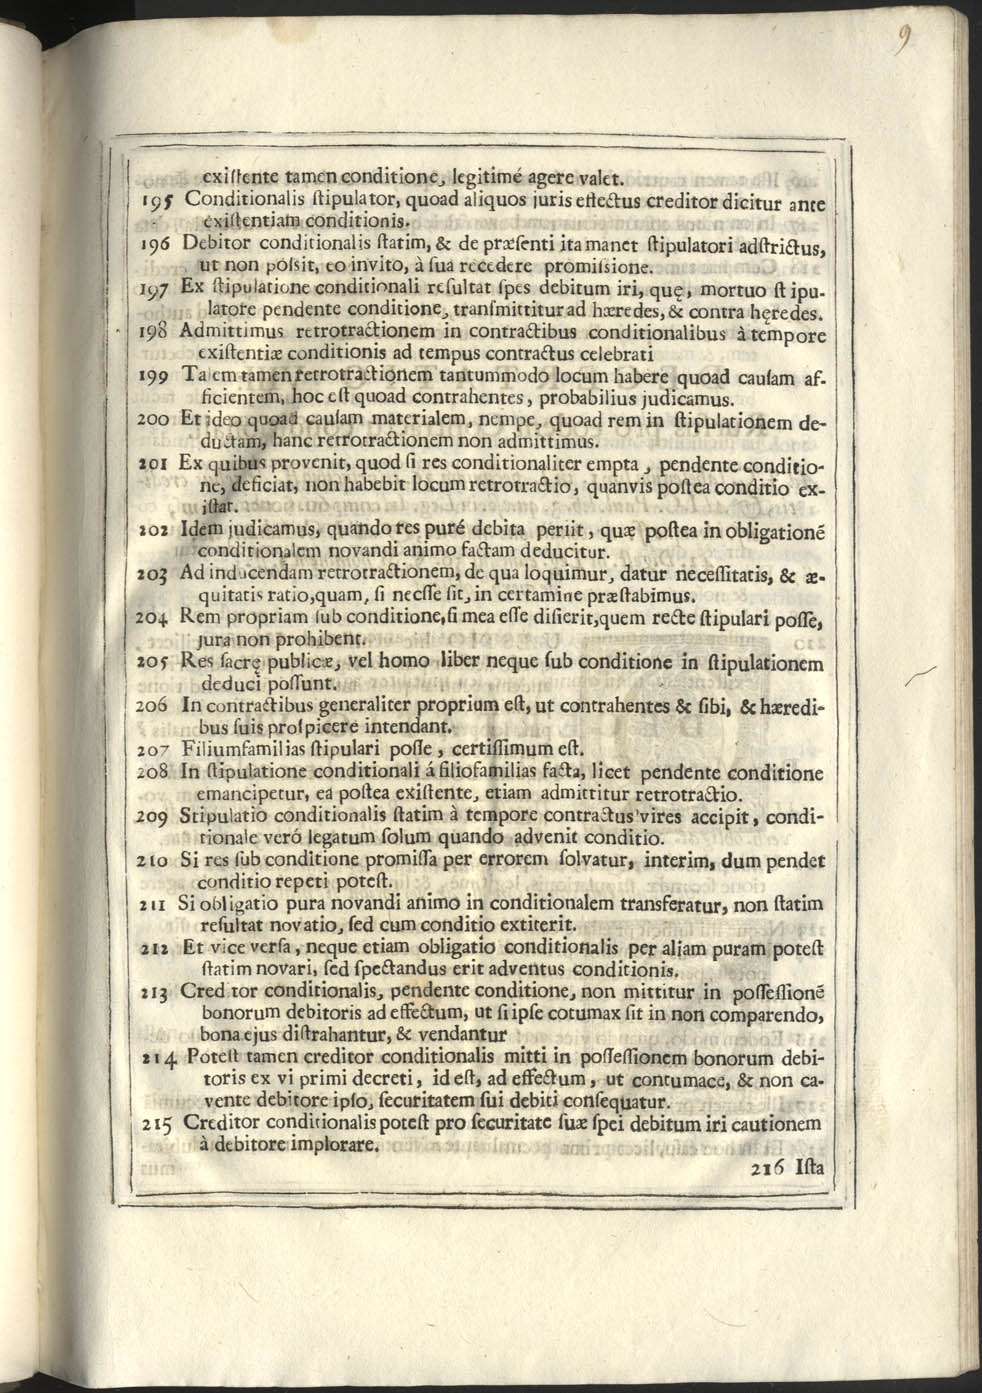 9
exiſtente tamen conditione, legitimé agere valet.
195 Conditionalis ſtipulator, quoad aliquos juris effectus creditor dicitur ante
exiſtentiam conditionis.
196 Debitor conditionalis ſtatim, & de præſenti ita manet ſtipulatori adſtrictus,
ut non poſsit, eo invito, à ſua recedere promiſsione.
197 Ex ſtipulatione conditionali reſultat ſpes debitum iri, quę, mortuo ſtipu-
latore pendente conditione, tranſmittitur ad hæredes, & contra hęredes.
198 Admittimus retrotractionem in contractibus conditionalibus à tempore
exiſtentiæ conditionis ad tempus contractus celebrati
199 Ta em tamen retrotractionem tantummodo locum habere quoad cauſam af-
ficientem, hoc eſt quoad contrahentes, probabilius judicamus.
200 Et ideo quoad cauſam materialem, nempe, quoad rem in ſtipulationem de-
ductam, hanc retrotractionem non admittimus.
201 Ex quibus provenit, quod ſi res conditionaliter empta, pendente conditio-
ne, deficiat, non habebit locum retrotractio, quanvis poſtea conditio ex-
iſtat.
202 Idem judicamus, quando res puré debita periit, quæ poſtea in obligationẽ
conditionalem novandi animo factam deducitur.
203 Ad inducendam retrotractionem, de qua loquimur, datur neceſſitatis, & æ-
quitatis ratio,quam, ſi neceſſe ſit, in certamine præſtabimus.
204 Rem propriam ſub conditione,ſi mea eſſe diſierit,quem recte ſtipulari poſſe,
jura non prohibent.
205 Res ſacrę publicæ, vel homo liber neque ſub conditione in ſtipulationem
deduci poſſunt.
206 In contractibus generaliter proprium eſt, ut contrahentes & ſibi, & hæredi-
bus ſuis proſpicere intendant.
207 Filiumfamilias ſtipulari poſſe, certiſſimum eſt.
208 In ſtipulatione conditionali á filiofamilias facta, licet pendente conditione
emancipetur, ea poſtea exiſtente, etiam admittitur retrotractio.
209 Stipulatio conditionalis ſtatim à tempore contractus vires accipit, condi-
tionale veró legatum ſolum quando advenit conditio.
210 Si res ſub conditione promiſſa per errorem ſolvatur, interim, dum pendet
conditio repeti poteſt.
211 Si obligatio pura novandi animo in conditionalem transferatur, non ſtatim
reſultat novatio, ſed cum conditio extiterit.
212 Et vice verſa, neque etiam obligatio conditionalis per aliam puram poteſt
ſtatim novari, ſed ſpectandus erit adventus conditionis.
213 Cred tor conditionalis, pendente conditione, non mittitur in poſſeſſionẽ
bonorum debitoris ad effectum, ut ſi ipſe cotumax ſit in non comparendo,
bona ejus diſtrahantur, & vendantur
214 Poteſt tamen creditor conditionalis mitti in poſſeſſionem bonorum debi-
toris ex vi primi decreti, id eſt, ad effectum, ut contumace, & non ca-
vente debitore ipſo, ſecuritatem ſui debiti conſequatur.
215 Creditor conditionalis poteſt pro ſecuritate ſuæ ſpei debitum iri cautionem
à debitore implorare.
216 Iſta